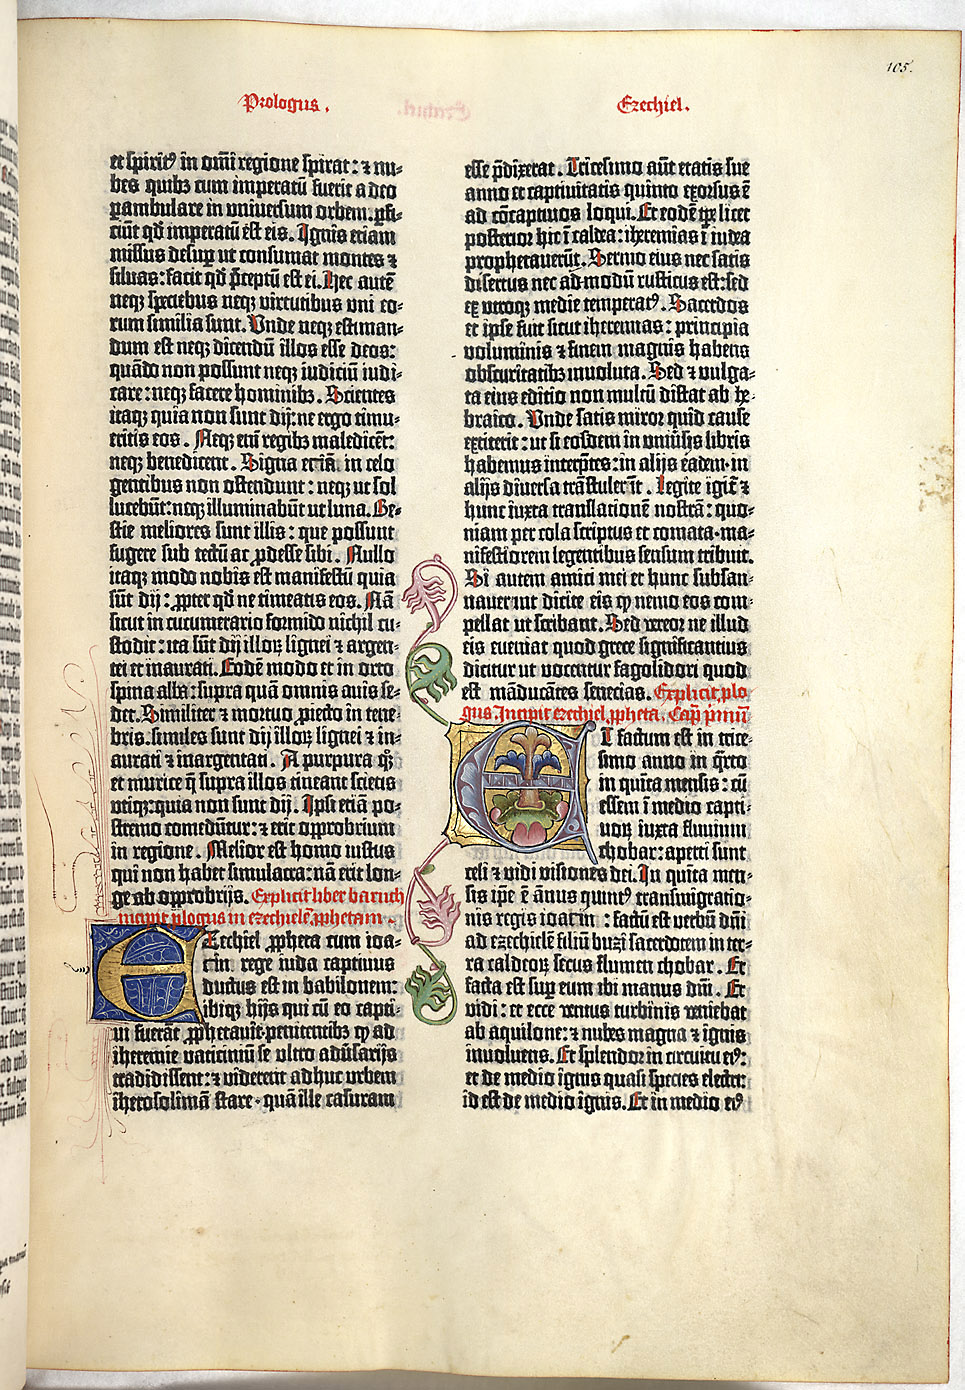 105.
Prologus.
Ezechiel.
et spiritꝰ in om̄i regione spirat: ⁊ nu-
bes quibꝫ cum imperatū fuerit a deo
ꝑambulare in universum orbem. ꝑfi-
ciūt qd̄ imperatū est eis. Ignis etiam
missus desuꝑ ut consumat montes ⁊
silvas: facit qd̄ p̄ceptū est ei. Hec autē
neqꝫ speciebus neqꝫ virtutibus uni eo-
rum similia sunt. Unde neqꝫ estiman-
dum est neqꝫ dicendū illos esse deos:
quādo non possunt neqꝫ iudiciū iudi-
care: neqꝫ facere hominibꝫ. Scientes
itaqꝫ quia non sunt dij: ne ergo timu-
eritis eos. Neqꝫ eni regibꝫ maledicēt:
neqꝫ benedicent. Signa eciā in celo
gentibus non ostendunt: neqꝫ ut sol
lucebūt: neqꝫ illuminabūt ut luna. Be-
stie meliores sunt illis: que possunt
fugere sub tectū ac ꝓdesse sibi. Nullo
itaqꝫ modo nobis est manifestū quia
sūt dij: ꝓpter qd̄ ne timeatis eos. Nā
sicut in cucumerario formido nichil cu-
stodit: ita sūt dij illoꝝ lignei ⁊ argen-
tei et inaurati. Eodē modo et in orto
spina alba: supra quā omnis avis se-
det. Similiter ⁊ mortuo ꝓiecto in tene-
bris. similes sunt dij illoꝝ lignei ⁊ in-
aurati ⁊ inargentati. A purpura qꝫ
et murice q̄ supra illos tineant scietis
utiqꝫ: quia non sunt dij. Ipsi etiā po-
stremo comedūtur: ⁊ erit opprobrium
in regione. Melior est homo iustus
qui non habet simulacra: nā erit lon-
ge ab opprobrijs. Explicit liber baruch
incipit ꝓlogus in ezechielē ꝓphetam.
Ezechiel ꝓpheta cum ioa-
chin rege iuda captivus
ductus est in babilonem:
ibiqꝫ hijs qui cū eo capti-
vi fuerāt ꝓphetavit. penitentibꝫ ꝙ ad
iheremie vaticiniū se ultro adv̄sarijs
tradidissent: ⁊ viderent adhuc urbem
iherosolimā stare. quā ille casuram
esse p̄dixerat. Tricesimo aūt etatis sue
anno et captivitatis quinto exorsus ē
ad cōcaptivos loqui. Et eodē tp̄e licet
posterior hic ī caldea: iheremias ī iudea
prophetaverūt. Sermo eius nec satis
disertus nec admodū rusticus est: sed
ex utroqꝫ medie temperatꝰ. Sacerdos
et ipse fuit sicut iheremias: principia
voluminis ⁊ finem magnis habens
obscuritatibꝫ involuta. Sed ⁊ vulga-
ta eius editio non multū distat ab he-
braico. Unde satis miror quid cause
extiterit: ut si eosdem in univ̄sis libris
habemus interp̄tes: in alijs eadem. in
alijs diversa trāstulerīt. Legite igit̄ ⁊
hunc iuxta translationē nostrā: quo-
niam per cola scriptus et comata. ma-
nifestiorem legentibus sensum tribuit.
Si autem amici mei et hunc subsan-
naverint dicite eis ꝙ nemo eos com-
pellat ut scribant. Sed vereor ne illud
eis eveniat quod grece significantius
dicitur ut vocentur fagolidori quod
est māducātes senecias. Explicit ꝓlo
gus Incipit ezechiel ꝓpheta. Capm̄ primū
Et factum est in trice-
simo anno in q̄rto
in quīta mensis: cū
essem ī medio capti-
voꝝ iuxta fluvium
chobar: aperti sunt
celi ⁊ vidi visiones dei. In quīta men-
sis ip̄e ē annus quintꝰ transmigratio-
nis regis ioachin: factū est verbū dn̄i
ad ezechielē filiū buzi sacerdotem in ter-
ra caldeoꝝ secus flumen chobar. Et
facta est suꝑ eum ibi manus dn̄i. Et
vidi: et ecce ventus turbinis veniebat
ab aquilone: ⁊ nubes magna ⁊ ignis
involvens. Et splendor in circuitu eiꝰ:
et de medio ignis quasi species electri:
id est de medio ignis. Et in medio eiꝰ